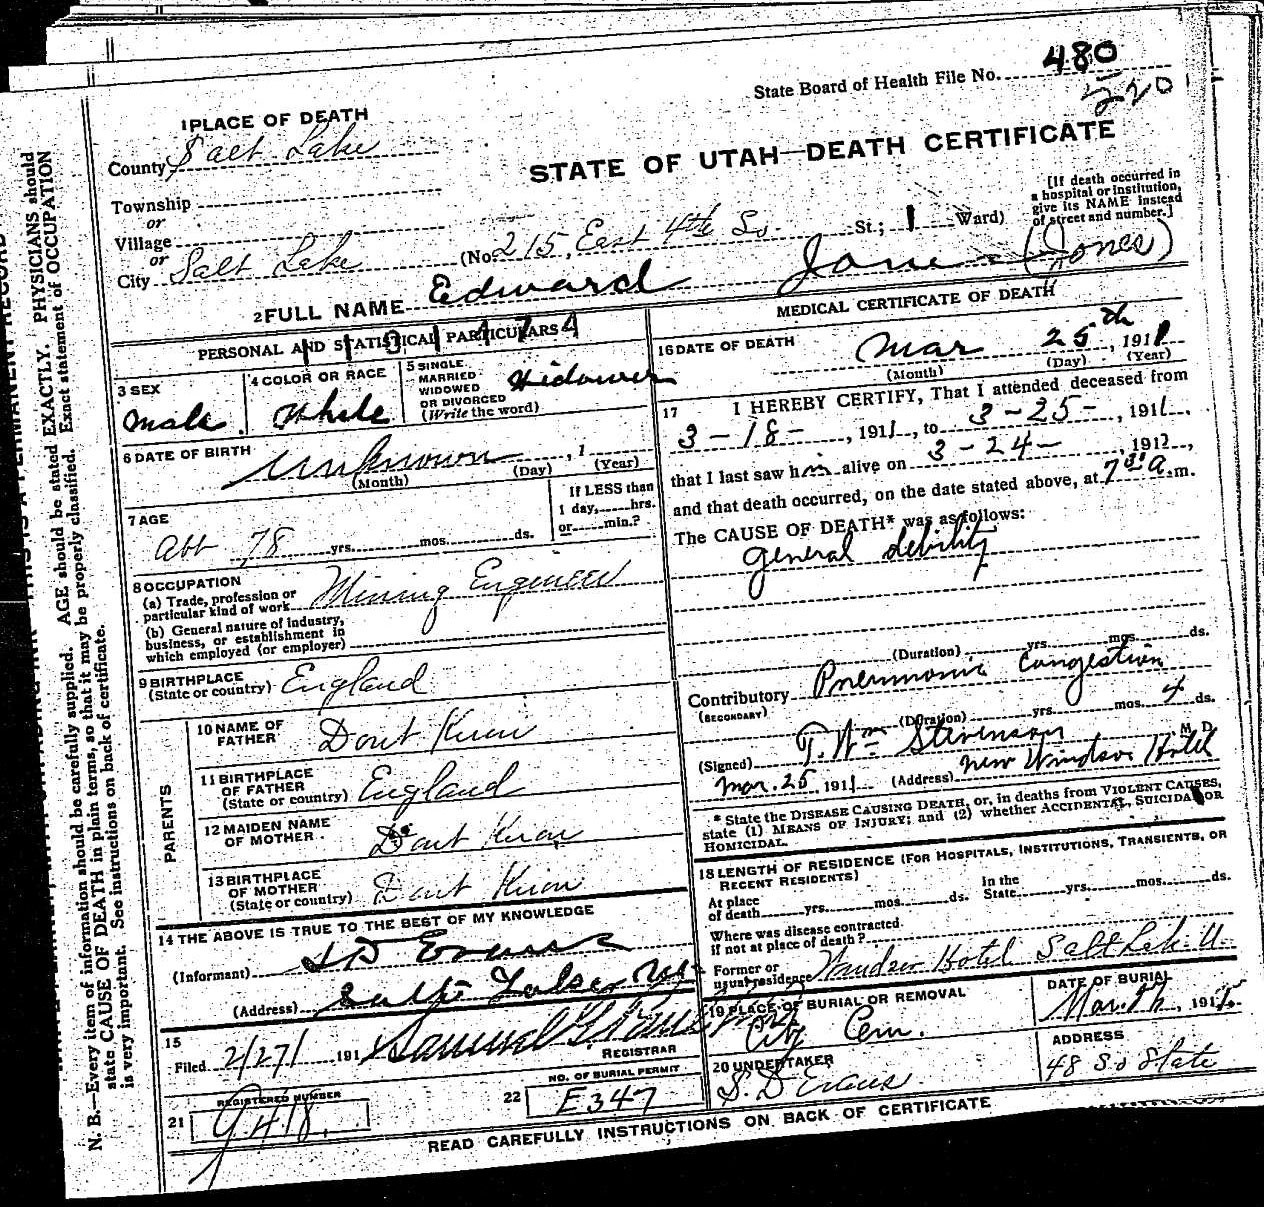 State Board of Health File No. 480
520
STATE OF UTAH—DEATH CERTIFICATE
1 PLACE OF DEATH
County Salt Lake
Township
or
Village
or
City Salt Lake (No. 215, East 4th So. St.; 1 Ward)
[If death occurred in
a hospital or institution,
give its NAME instead
of street and number.]
2 FULL NAME Edward Jones (Jones)
PERSONAL AND STATISTICAL PARTICULARS
3 SEX
Male
4 COLOR OR RACE
White
5 SINGLE
MARRIED
WIDOWED
OR DIVORCED
(Write the word)
Widower
6 DATE OF BIRTH
Unknown , 1
(Month) (Day) (Year)
7 AGE
Abt 78 yrs. mos. ds.
If LESS than
1 day, hrs.
or min.?
8 OCCUPATION
(a) Trade, profession or
particular kind of work Mining Engineer
(b) General nature of industry,
business, or establishment in
which employed (or employer)
9 BIRTHPLACE
(State or country) England
PARENTS
10 NAME OF
FATHER Dont Know
11 BIRTHPLACE
OF FATHER
(State or country) England
12 MAIDEN NAME
OF MOTHER Dont Know
13 BIRTHPLACE
OF MOTHER
(State or country) Dont Know
14 THE ABOVE IS TRUE TO THE BEST OF MY KNOWLEDGE
(Informant) S D Evans
(Address) Salt Lake City
15
Filed 2/27/ 191
REGISTRAR
REGISTERED NUMBER
21 G 418.
NO. OF BURIAL PERMIT
22 E 347
MEDICAL CERTIFICATE OF DEATH
16 DATE OF DEATH
Mar 25th, 1911
(Month) (Day) (Year)
17 I HEREBY CERTIFY, That I attended deceased from
3-18-, 1911, to 3-25-, 1911,
that I last saw him alive on 3-24-, 1912,
and that death occurred, on the date stated above, at 7 30 a. m.
The CAUSE OF DEATH* was as follows:
general debility
(Duration) yrs. mos. ds.
Contributory Pneumonic Congestion
(SECONDARY)
(Duration) yrs. mos. 4 ds.
(Signed) T. Wm Stevenson M. D.
Mar. 25 1911 (Address) New Windsor Hotel
* State the DISEASE CAUSING DEATH, or, in deaths from VIOLENT CAUSES,
state (1) MEANS OF INJURY; and (2) whether ACCIDENTAL, SUICIDAL OR
HOMICIDAL.
18 LENGTH OF RESIDENCE (FOR HOSPITALS, INSTITUTIONS, TRANSIENTS, OR
RECENT RESIDENTS)
At place
of death yrs. mos. ds. In the
State yrs. mos. ds.
Where was disease contracted
if not at place of death?
Former or
usual residence Windsor Hotel Salt Lake U.
19 PLACE OF BURIAL OR REMOVAL
City Cem.
DATE OF BURIAL
Mar. , 191
20 UNDERTAKER
S. D Evans
ADDRESS
48 So State
READ CAREFULLY INSTRUCTIONS ON BACK OF CERTIFICATE
N. B.—Every item of information should be carefully supplied. AGE should be stated EXACTLY. PHYSICIANS should
state CAUSE OF DEATH in plain terms, so that it may be properly classified. Exact statement of OCCUPATION
is very important. See instructions on back of certificate.